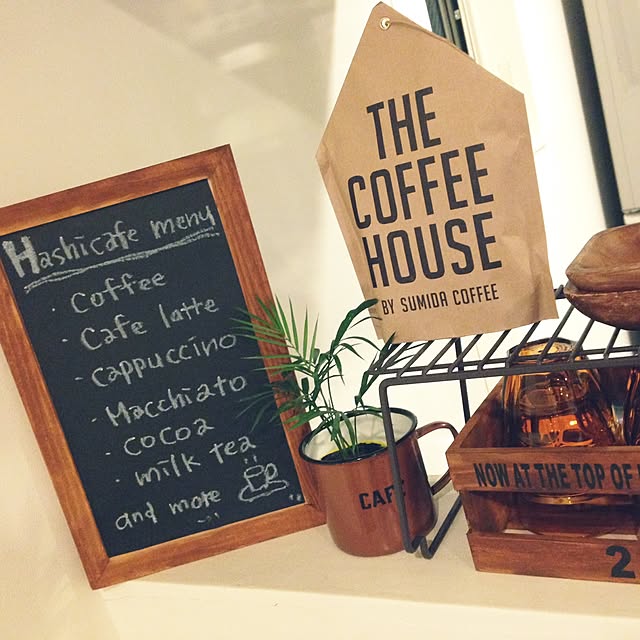 Hashicafe menu
· Coffee
· Cafe latte
· cappuccino
· Macchiato
· cocoa
· milk tea
and more
THE
COFFEE
HOUSE
BY SUMIDA COFFEE
CAF
NOW AT THE TOP OF
2